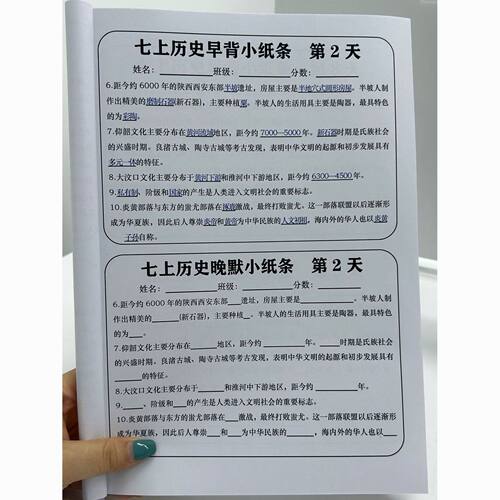 七上历史早背小纸条 第2天
姓名：________班级：________分数：________
6.距今约6000年的陕西西安东部半坡遗址，房屋主要是半地穴式圆形房屋。半坡人制
作出精美的磨制石器(新石器)，主要种植粟。半坡人的生活用具主要是陶器，最具特色
的为彩陶。
7.仰韶文化主要分布在黄河流域地区，距今约7000—5000年。新石器时期是氏族社会
的兴盛时期。良渚古城、陶寺古城等考古发现，表明中华文明的起源和初步发展具有
多元一体的特征。
8.大汶口文化主要分布于黄河下游和淮河中下游地区，距今约6300—4500年。
9.私有制、阶级和国家的产生是人类进入文明社会的重要标志。
10.炎黄部落与东方的蚩尤部落在涿鹿激战，最终打败蚩尤。这一部落联盟以后逐渐形
成为华夏族，因此后人尊崇炎帝和黄帝为中华民族的人文初祖，海内外的华人也以炎黄
子孙自称。
七上历史晚默小纸条 第2天
姓名：________班级：________分数：________
6.距今约6000年的陕西西安东部____遗址，房屋主要是________。半坡人制
作出精美的____(新石器)，主要种植__。半坡人的生活用具主要是陶器，最具特色
的为____。
7.仰韶文化主要分布在________地区，距今约________年。____时期是氏族社会
的兴盛时期。良渚古城、陶寺古城等考古发现，表明中华文明的起源和初步发展具有
____的特征。
8.大汶口文化主要分布于____和淮河中下游地区，距今约________年。
9.____、阶级和____的产生是人类进入文明社会的重要标志。
10.炎黄部落与东方的蚩尤部落在____激战，最终打败蚩尤。这一部落联盟以后逐渐形
成为华夏族，因此后人尊崇____和____为中华民族的____，海内外的华人也以____